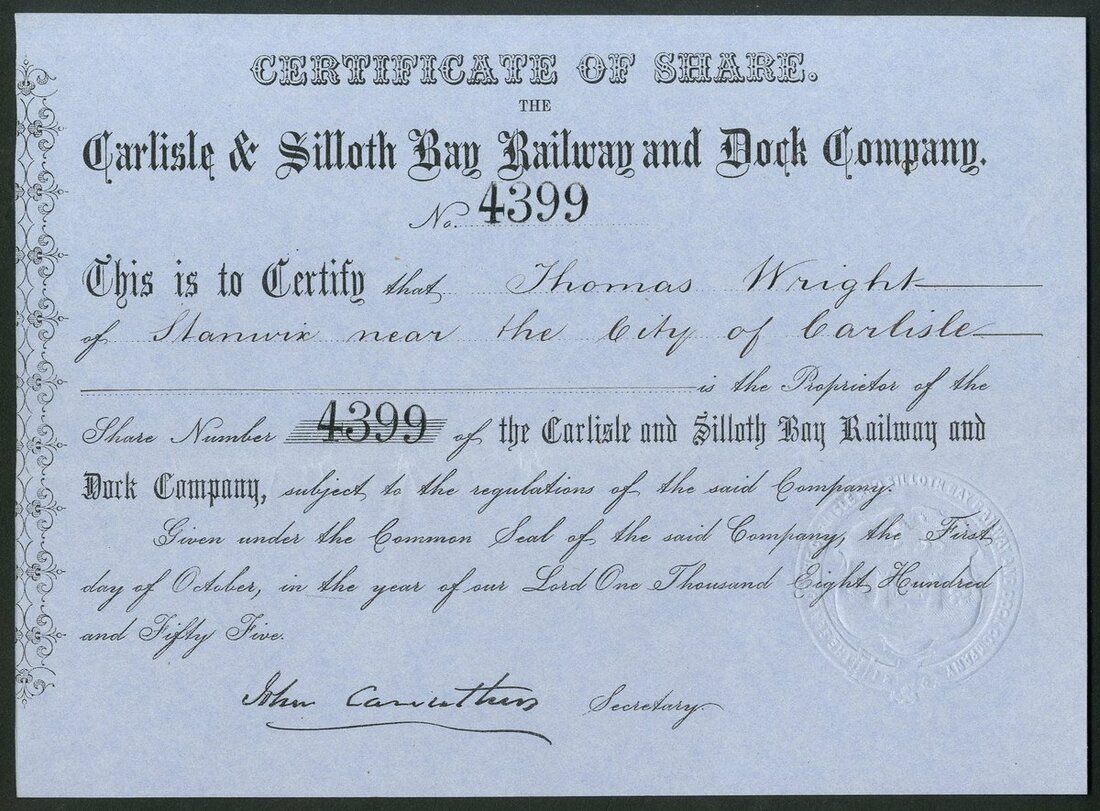 CERTIFICATE OF SHARE.
THE
Carlisle & Silloth Bay Railway and Dock Company.
No. 4399
This is to Certify that Thomas Wright
of Stanwix near the City of Carlisle
is the Proprietor of the
Share Number 4399 of the Carlisle and Silloth Bay Railway and
Dock Company, subject to the regulations of the said Company.
Given under the Common Seal of the said Company, the First
day of October, in the year of our Lord One Thousand Eight Hundred
and Fifty Five.
John Carruthers Secretary